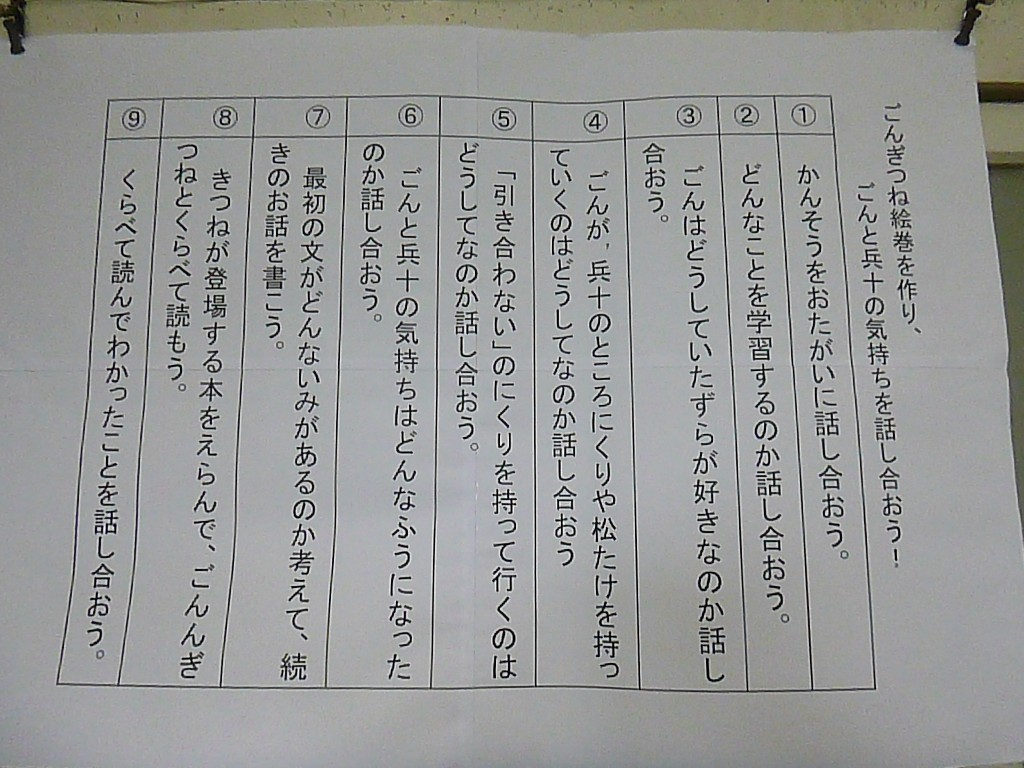 ごんぎつね絵巻を作り、
ごんと兵十の気持ちを話し合おう！
①
かんそうをおたがいに話し合おう。
②
どんなことを学習するのか話し合おう。
③
ごんはどうしていたずらが好きなのか話し
合おう。
④
ごんが,兵十のところにくりや松たけを持っ
ていくのはどうしてなのか話し合おう
⑤
「引き合わない」のにくりを持って行くのは
どうしてなのか話し合おう。
⑥
ごんと兵十の気持ちはどんなふうになった
のか話し合おう。
⑦
最初の文がどんないみがあるのか考えて、続
きのお話を書こう。
⑧
きつねが登場する本をえらんで、ごんんぎ
つねとくらべて読もう。
⑨
くらべて読んでわかったことを話し合おう。